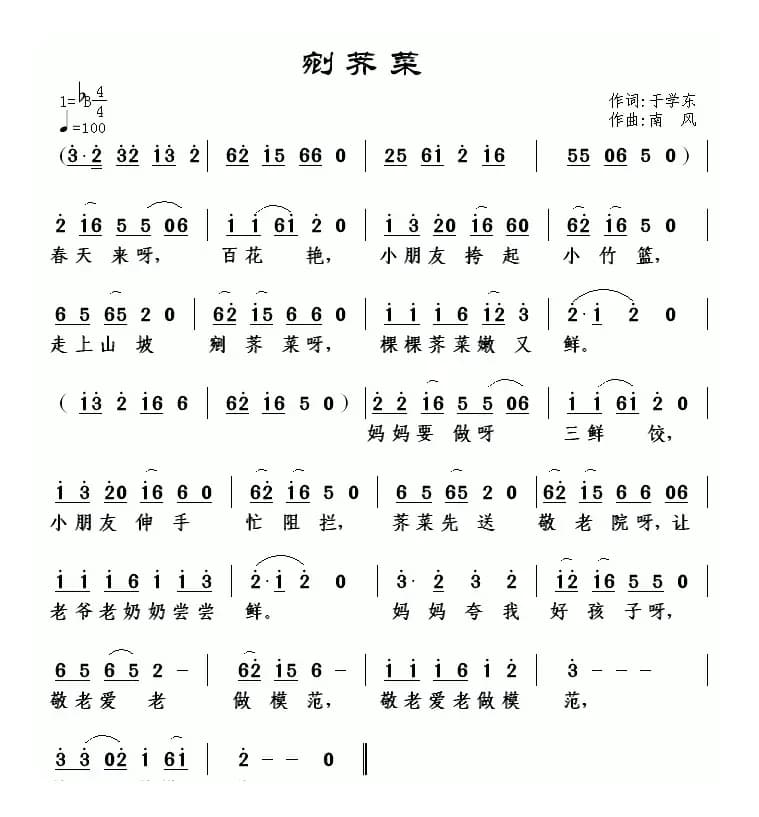 剜荠菜
1=♭B 4/4
作词:于学东
♩=100
作曲:南 风
(3·2 32 13 2 | 62 15 66 0 | 25 61 2 16 | 55 06 5 0)|
2 16 5 5 06 | 1 1 61 2 0 | 1 3 20 16 60 | 62 16 5 0 |
春天 来呀, 百花 艳, 小朋友 挎起 小竹篮,
6 5 65 2 0 | 62 15 6 6 0 | 1 1 1 6 12 3 | 2·1 2 0 |
走上山 坡 剜荠菜呀, 棵棵荠菜嫩又 鲜。
( 13 2 16 6 | 62 16 5 0)| 2 2 16 5 5 06 | 1 1 61 2 0 |
妈妈要 做呀 三鲜 饺,
1 3 20 16 6 0 | 62 16 5 0 | 6 5 65 2 0 | 62 15 6 6 06 |
小朋友 伸手 忙阻拦, 荠菜先 送 敬老院呀,让
1 1 1 6 1 1 3 | 2·1 2 0 | 3· 2 3 2 | 12 16 5 5 0 |
老爷老奶奶尝尝 鲜。 妈 妈夸我 好孩子呀,
6 5 6 5 2 - | 62 15 6 - | 1 1 1 6 1 2 | 3 - - - |
敬老爱 老 做模范, 敬老爱老做模 范,
3 3 02 1 61 | 2 - - 0 ‖